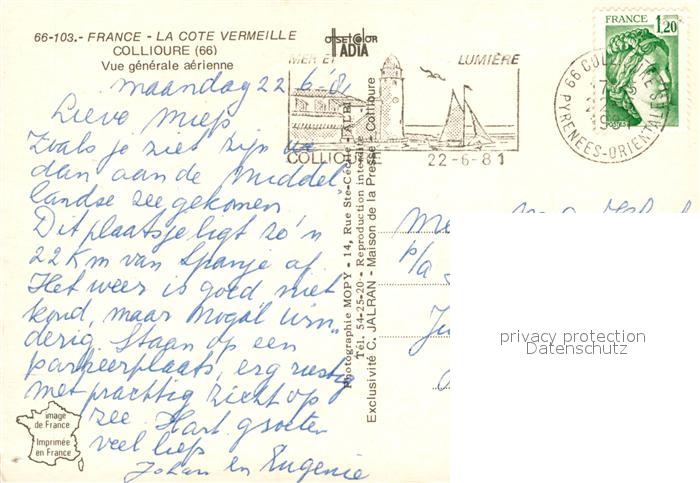 66-103.- FRANCE - LA COTE VERMEILLE
COLLIOURE (66)
Vue générale aérienne
maandag 22-6-'81
Lieve Miep,
Zoals je ziet zijn we
dan aan de Middel,
landse zee gekomen
Dit plaatsje ligt zo'n
22 Km van Spanje af.
Het weer is goed niet
koud, maar nogal win-
derig. Staan op een
parkeerplaats, erg rustig
met prachtig zicht op
zee. Hart. groeten
veel liefs
Johan en Eugenie
image
de France
Imprimée
en France
offset color
IADIA
Photographie MOPY - 14, Rue Ste-Cécile - ALBI
Tél. 54-25-20 - Reproduction interdite
Exclusivité C. JALRAN - Maison de la Presse - Collioure
MER ET LUMIÈRE
COLLIOURE 22-6-81
FRANCE
1,20
66 COLLIOURE
PYRENEES-ORIENTALES
p/a
privacy protection
Datenschutz